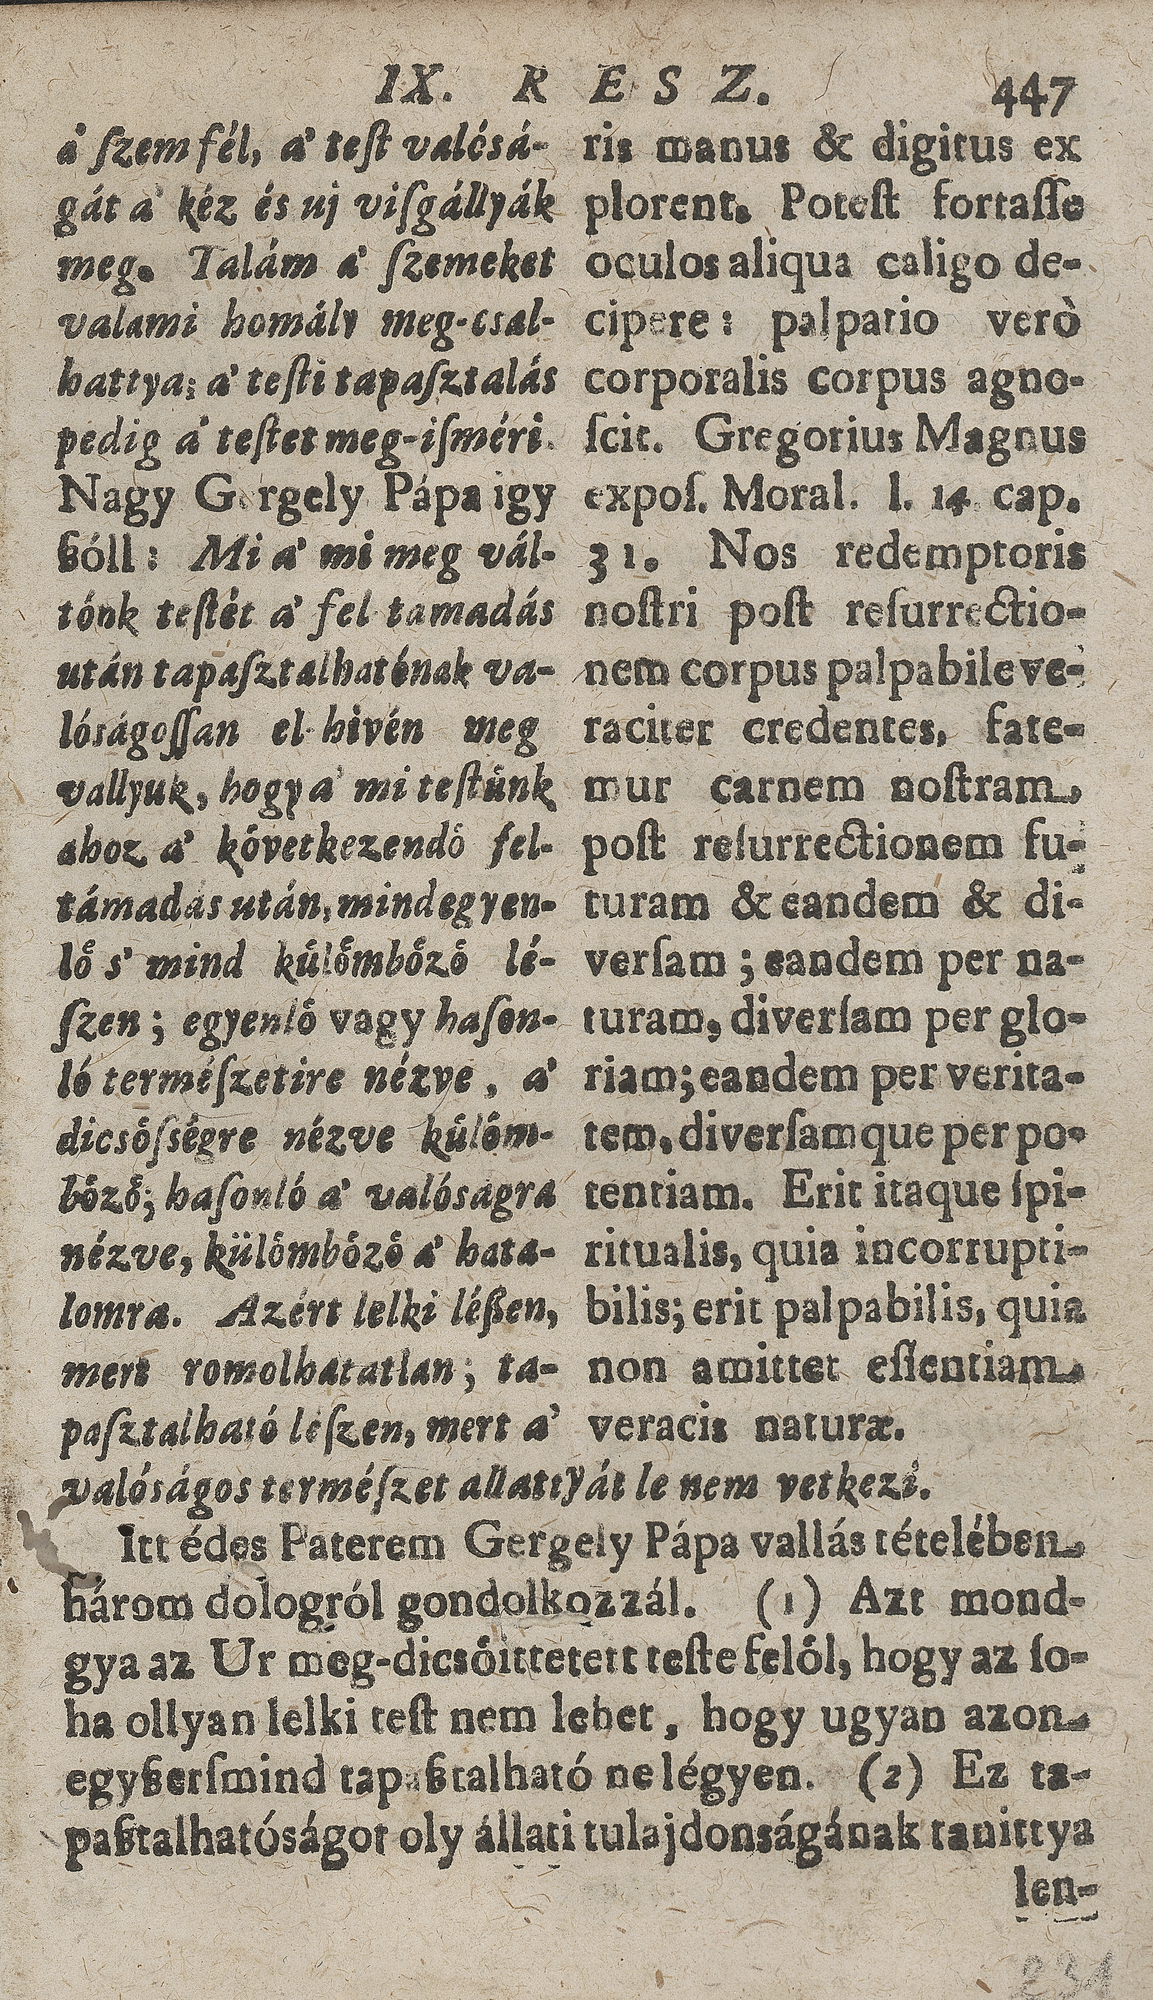 IX. RESZ. 447
á ſzem fél, a' teſt valósá-
gát a' kéz és uj viſgállyák
meg. Talám a' ſzemeket
valami homály meg-csal-
hattya; a' teſti tapaſztalás
pedig a' teſtet meg-iſméri.
Nagy Gergely Pápa igy
ßóll: Mi a' mi meg vál-
tónk teſtét a' fel tamadás
után tapaſztalhatónak va-
lóságoſſan el-hivén meg
vallyuk, hogy a' mi teſtünk
ahoz a' kóvetkezendó fel-
támadás után, mind egyen-
lő s' mind külömbőző lé-
ſzen; egyenló vagy haſon-
ló természetire nézve, a'
dicsőſségre nézve külöm-
bőző; haſonló a' valóságra
nézve, külömbőző a' hata-
lomra. Azért lelki léßen,
mert romolhatatlan; ta-
paſztalható léſzen, mert a'
valóságos terméſzet allattyát le nem vetkezi.
ris manus & digitus ex
plorent. Poteſt fortaſſe
oculos aliqua caligo de-
cipere: palpatio verò
corporalis corpus agno-
ſcit. Gregorius Magnus
expoſ. Moral. l. 14. cap.
31. Nos redemptoris
noſtri poſt reſurrectio-
nem corpus palpabile ve-
raciter credentes, fate-
mur carnem noſtram
poſt reſurrectionem fu-
turam & eandem & di-
verſam; eandem per na-
turam, diverſam per glo-
riam; eandem per verita-
tem, diverſamque per po-
tentiam. Erit itaque ſpi-
ritualis, quia incorrupti-
bilis; erit palpabilis, quia
non amittet eſſentiam
veracis naturæ.
Itt édes Paterem Gergely Pápa vallás tételében
három dologról gondolkozzál. (1) Azt mond-
gya az Ur meg-dicsőittetett teſte felől, hogy az ſo-
ha ollyan lelki teſt nem lehet, hogy ugyan azon
egyßerſmind tapaßtalható ne légyen. (2) Ez ta-
paßtalhatóságot oly állati tulajdonságának tanittya
len-
231